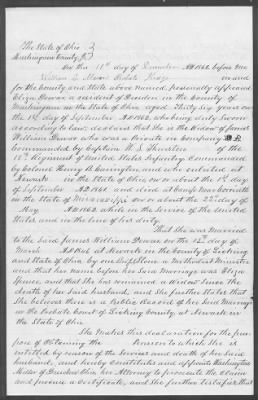 The State of Ohio }
Muskingum County, ss }
On this 18th day of December A.D. 1862, before me
William T. Mason Probate Judge in and
for the County and State above named, personally appeared
Eliza Devor a resident of Dresden in the County of
Muskingum in the State of Ohio aged Thirty Six years on
the 1st day of September A.D. 1862, who being duly sworn
according to law, declares that she is the Widow of James
William Devor who was a Private in Company B
Commanded by Captain W. S. Thurston of the
18th Regiment of United States Infantry Commanded
by Colonel Henry B. Carrington and who enlisted at
Newark in the State of Ohio on or about the 1st day
of September A.D. 1861, and died at Camp near Corinth
in the State of Mississippi on or about the 22d day of
May A.D. 1862 while in the Service of the United
States and in the line of his duty.
That She was Married
to the Said James William Devor on the 12th day of
March at Newark in the County of Licking
and State of Ohio by one a Methodist Minister
and that her name before her Said Marriage was Eliza
and that She has remained a Widow since the
death of her Said husband, and She further States that
She believes there is a public Record of her Said Marriage
in the Probate Court of Licking County, at Newark in
the State of Ohio
She Makes this declaration for the pur-
pose of Obtaining the Pension to which She is
entitled by reason of the Services and death of her Said
husband, and hereby Constitutes and appoints Washington
Miller of Dresden Ohio her Attorney to prosecute the Claim
and procure a Certificate, and She further testifies that